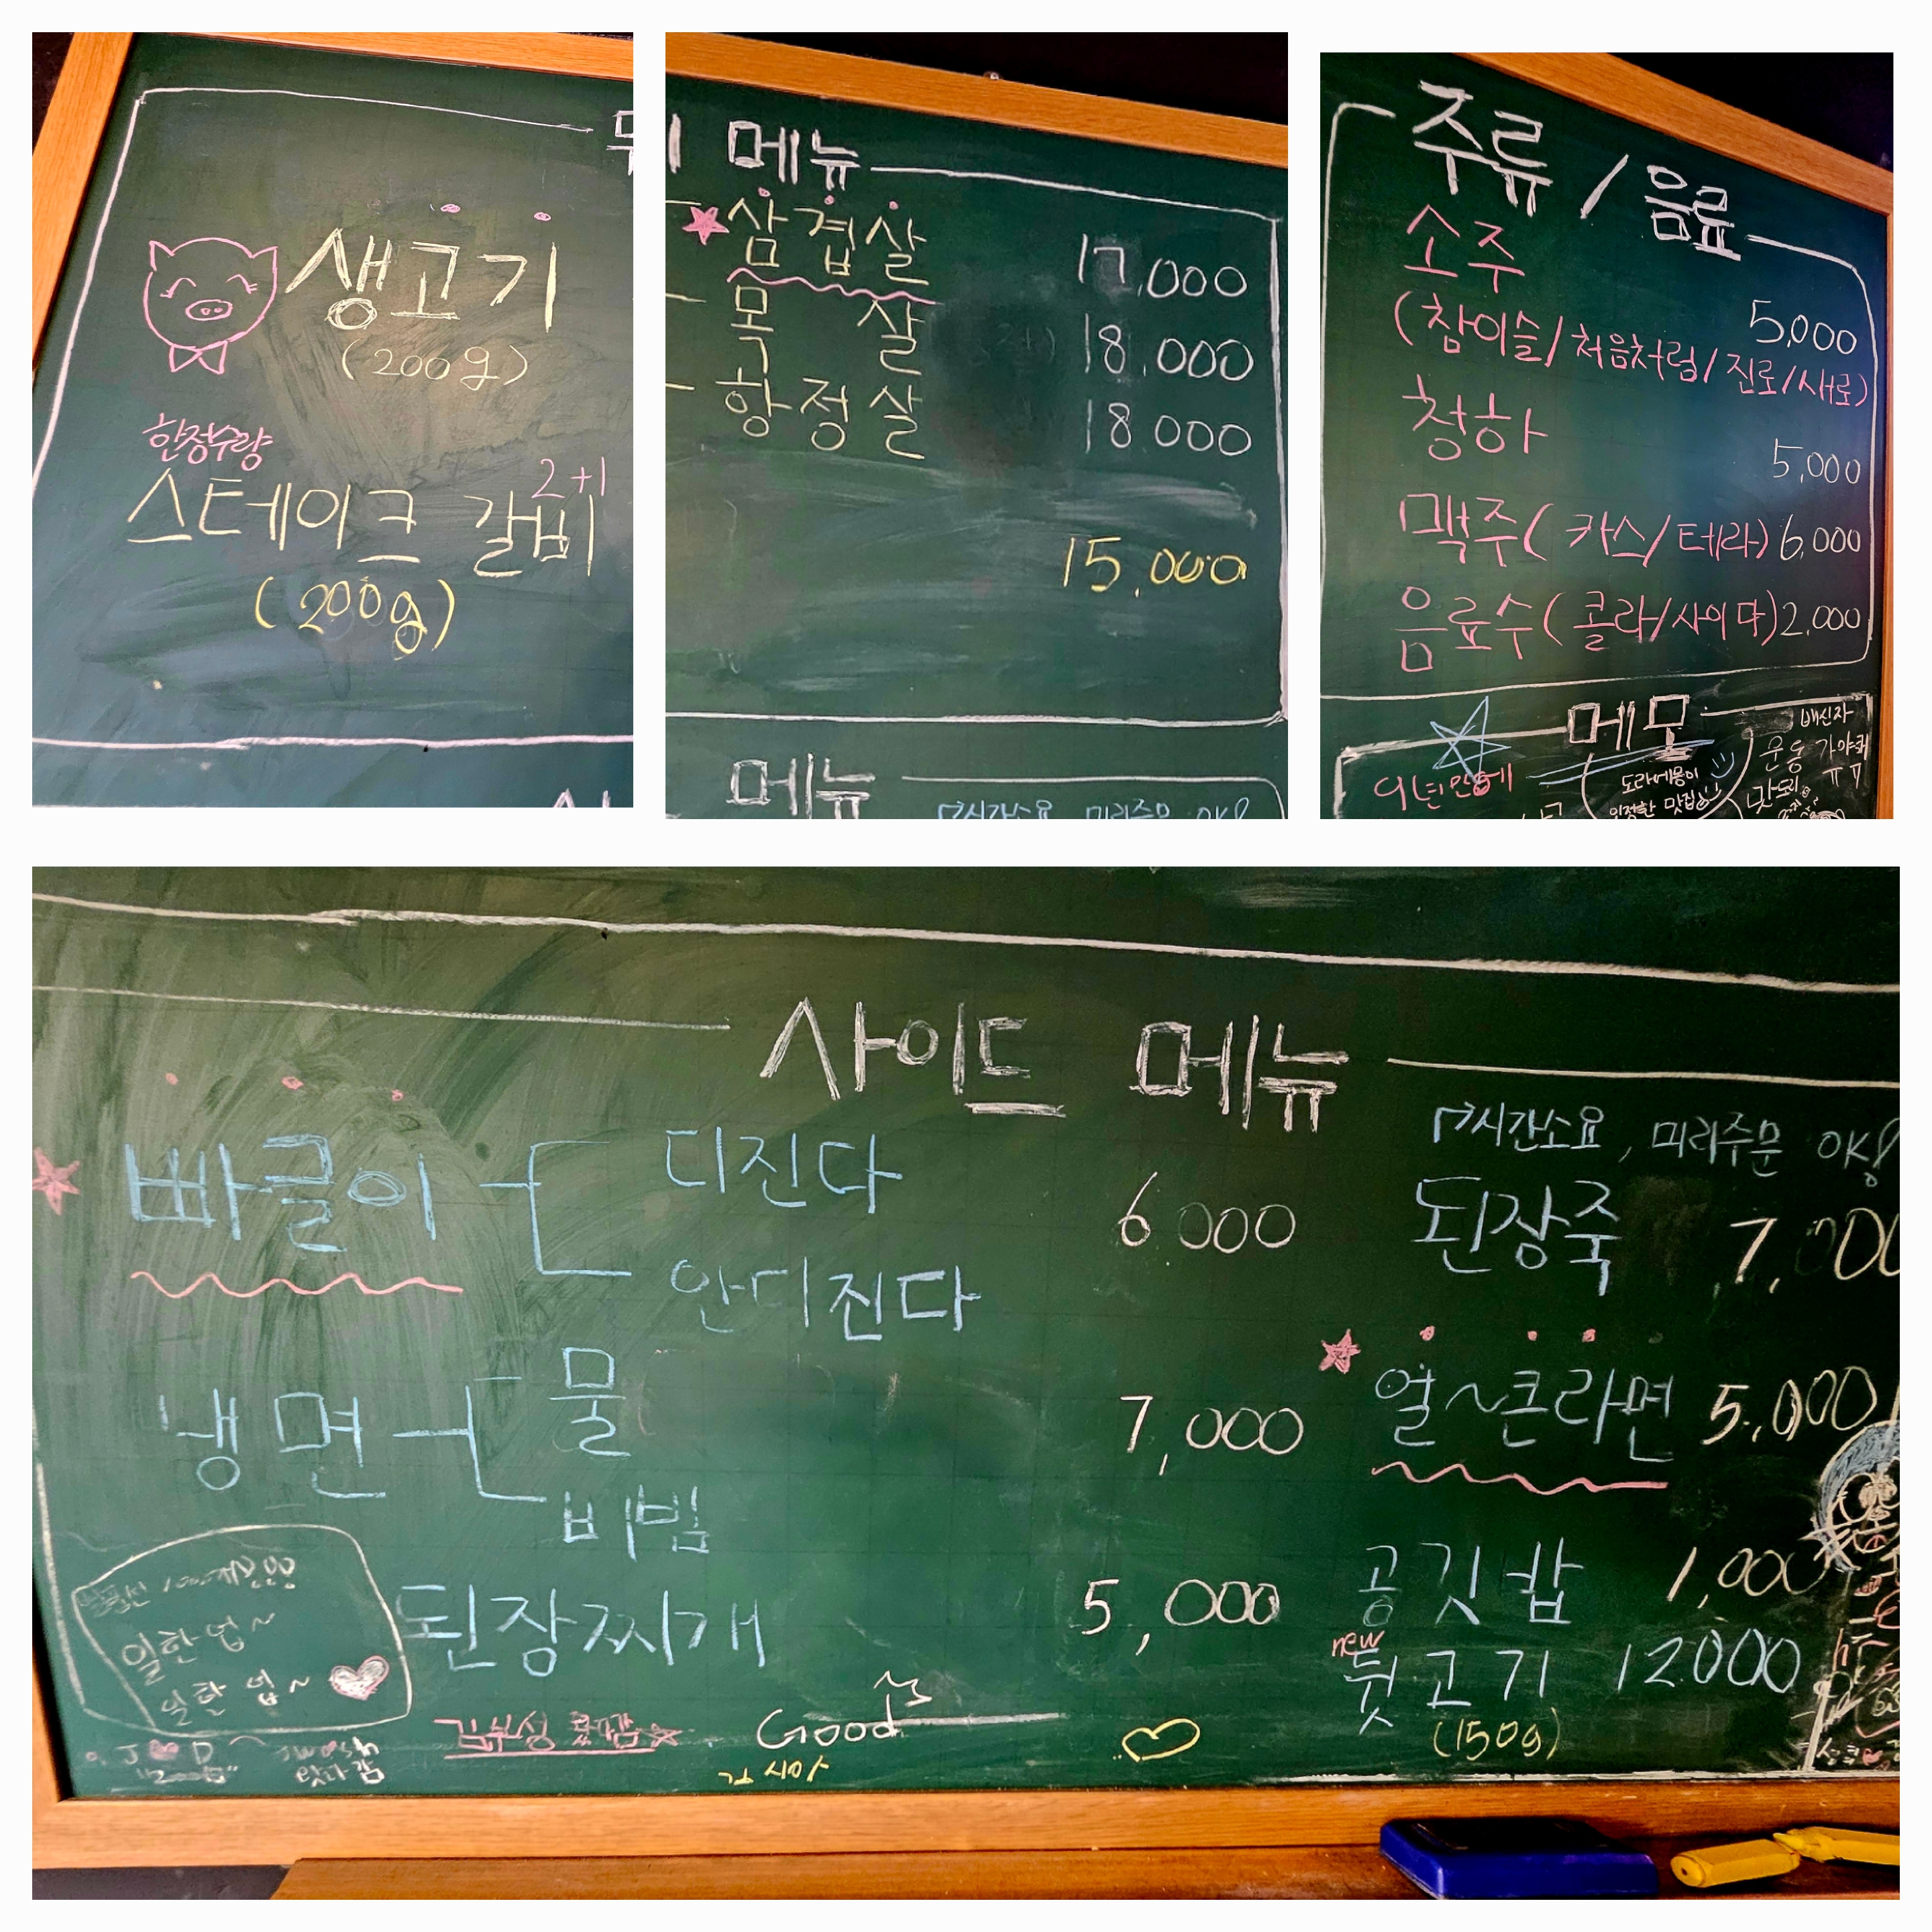 생고기
(200g)
한정수량
스테이크 갈비 2+1
(200g)
메뉴
삼겹살 17,000
목살 18,000
항정살 18,000
15,000
메뉴
시간소요 미리주문 OK!
주류 / 음료
소주
5,000
(참이슬/처음처럼/진로/새로)
청하
5,000
맥주( 카스/테라) 6,000
음료수( 콜라/사이다) 2,000
메모
배신자
운동
도라에몽이
인정한 맛집
사이드 메뉴
시간소요, 미리주문 OK!
빠글이 디진다 6000
안디진다
된장죽 7,000
냉면 물 7,000
비빔
얼~큰라면 5,000
된장찌개 5,000
공깃밥 1,000
new
뒷고기 12.000
(150g)
일한 업~
일한 업~
J D
Good